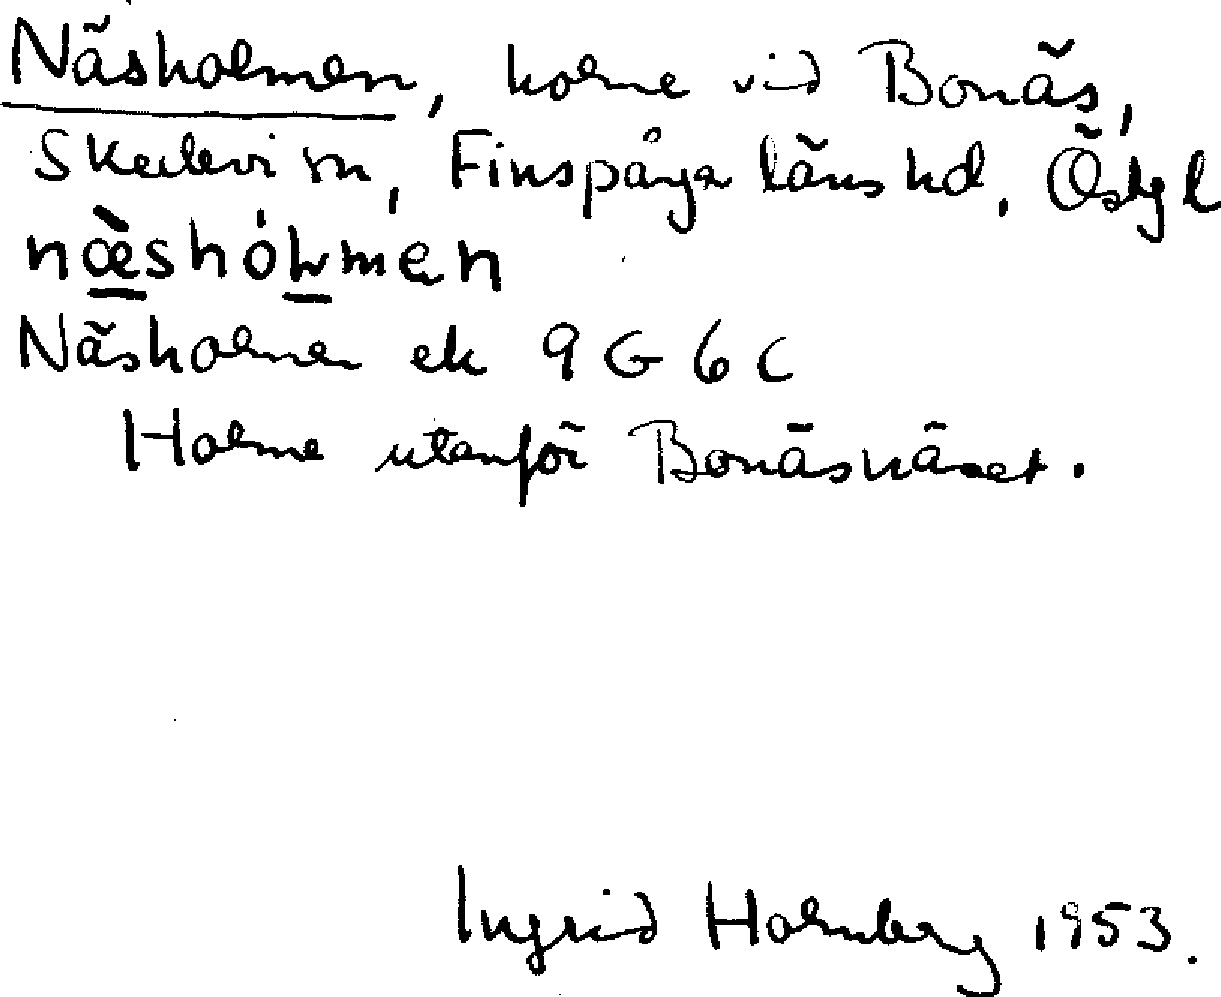 Näsholmen, holme vid Bonäs,
Skedevi sn, Finspånga läns hd, Östgl
næ̀shólmen
Näsholmen ek 9G6c
Holme utanför Bonäsnäset.
Ingrid Holmberg 1953.